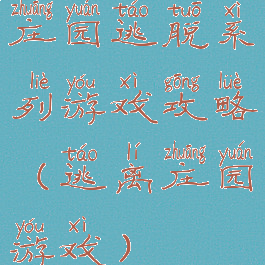 zhuāng yuán táo tuō xì
庄园逃脱系
liè yóu xì gōng lüè
列游戏攻略
táo lí zhuāng yuán
（逃离庄园
yóu xì
游戏）